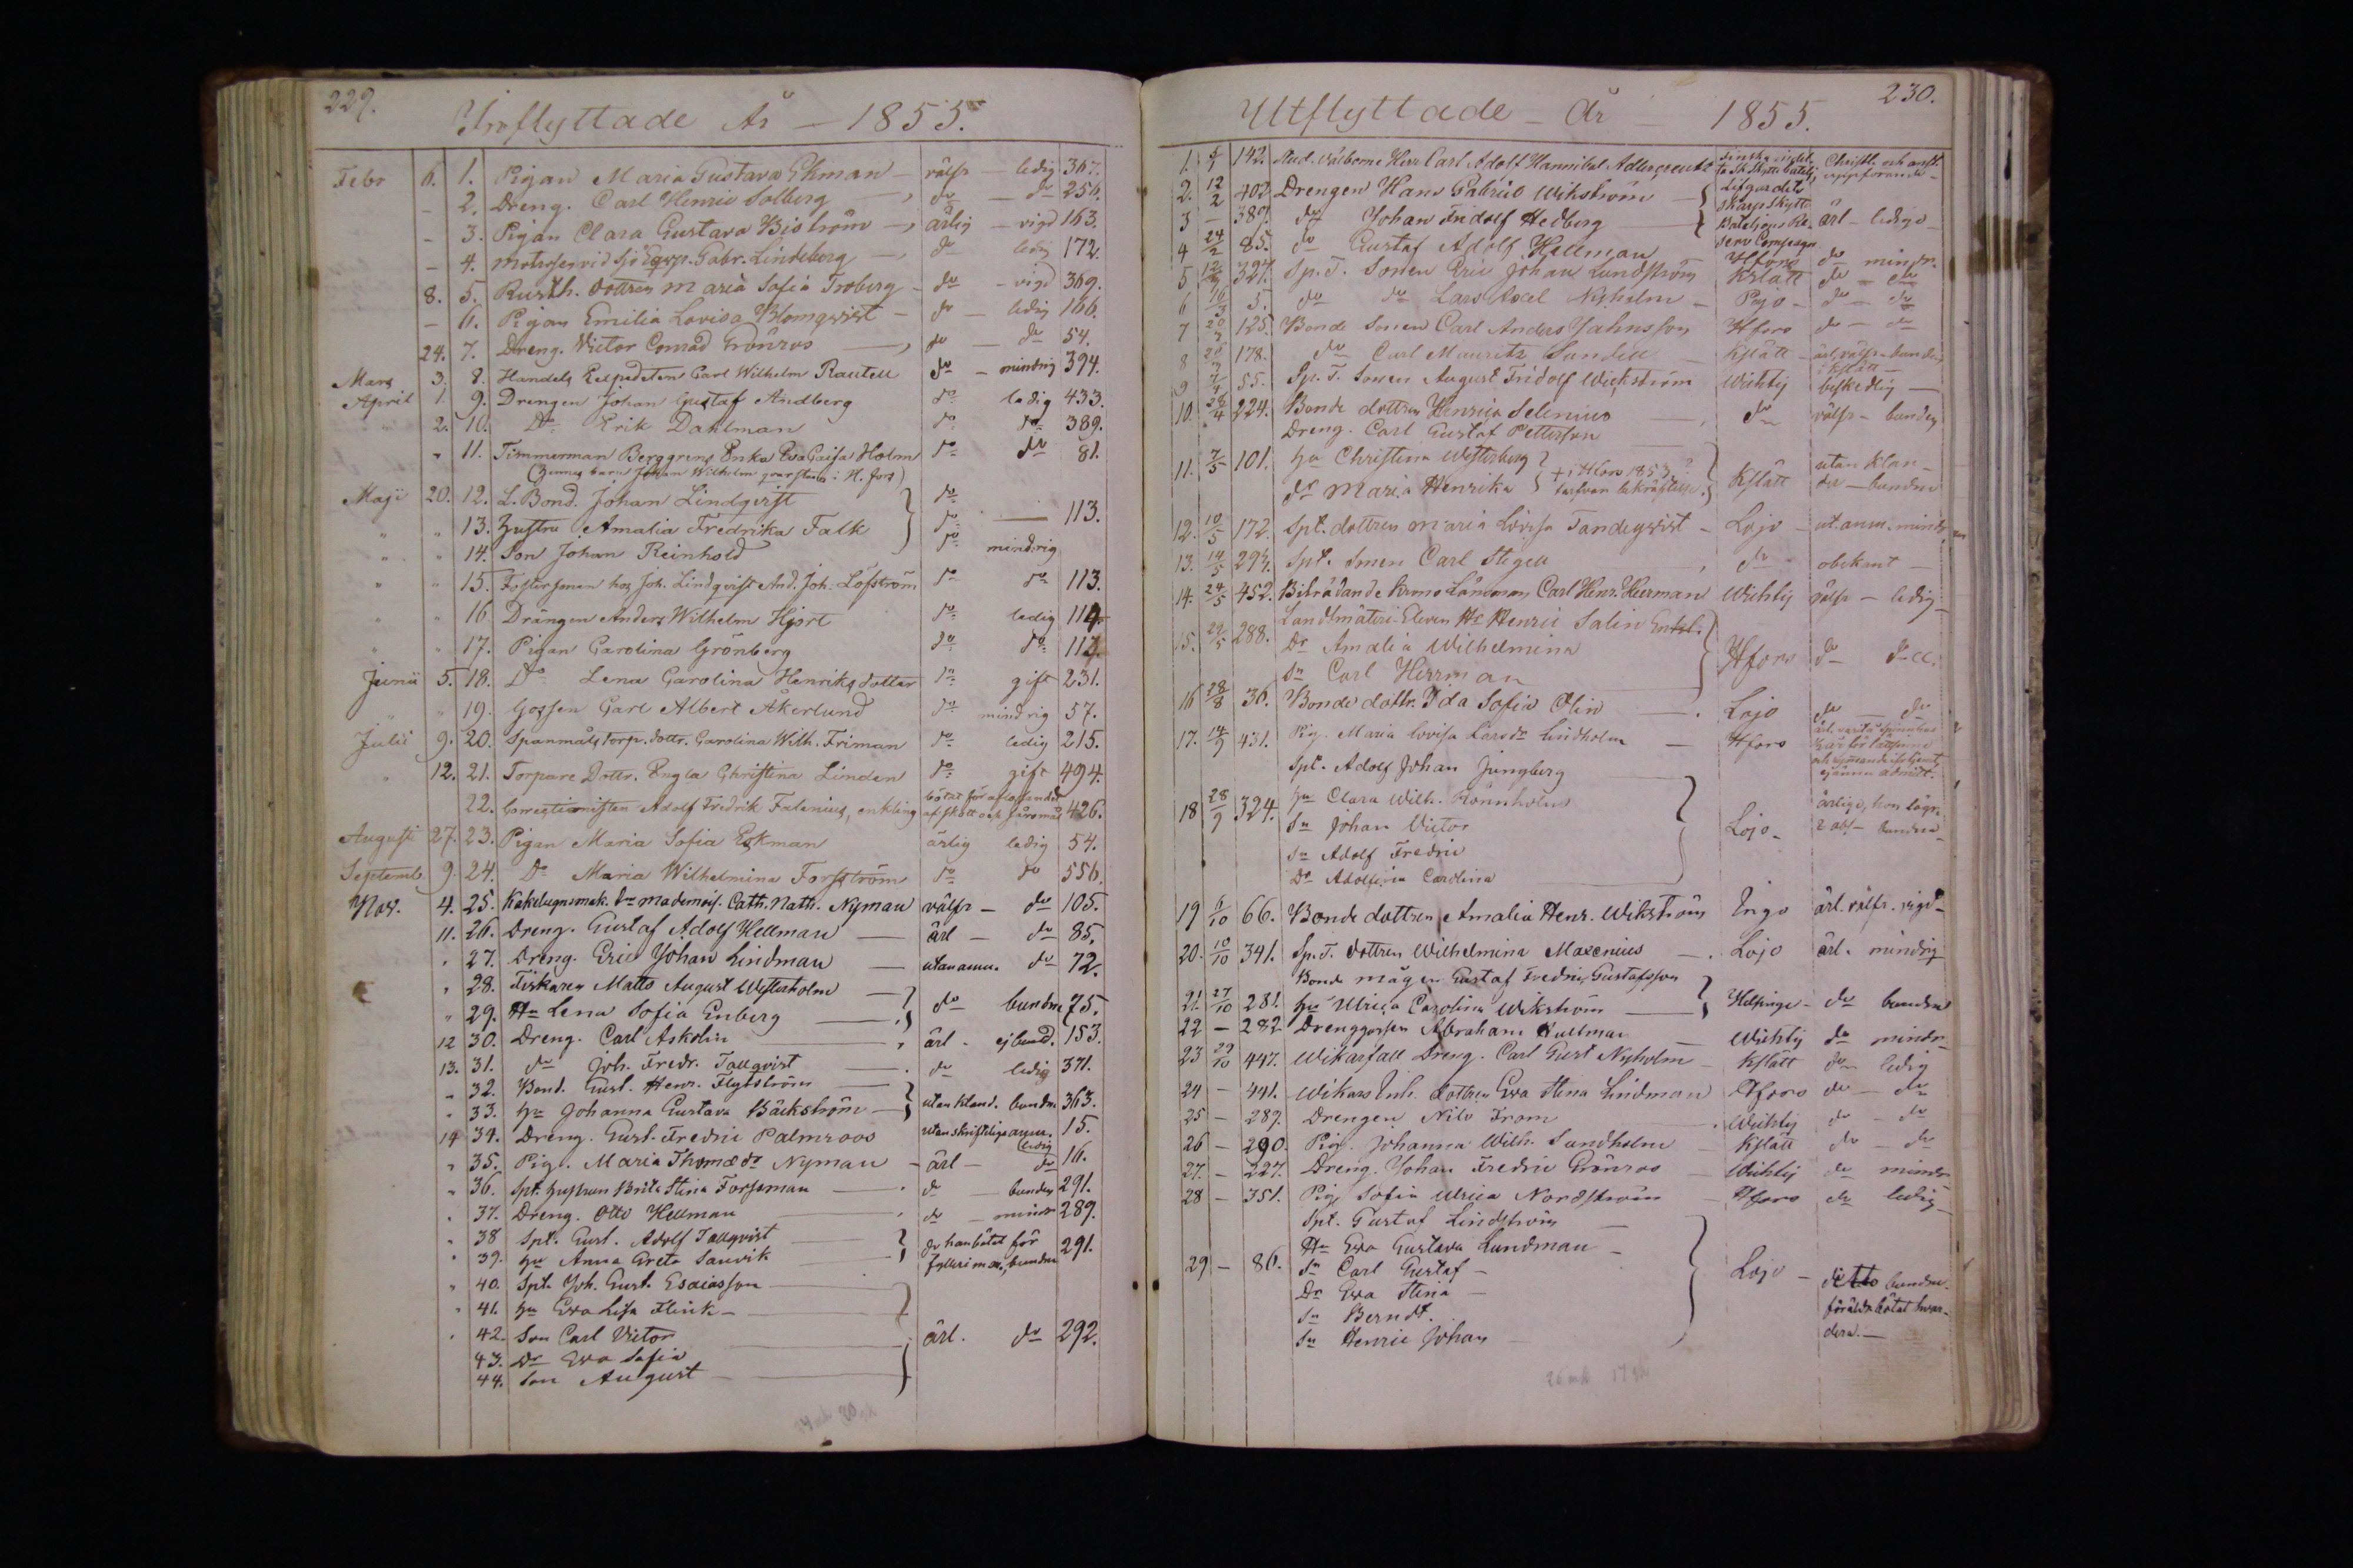 229.
Inflyttade År – 1855.
Febr 6. 1. Pigan Maria Gustava Ekman – välfr – ledig 367.
– 2. Dreng. Carl Henric Solberg – do – do 256.
– 3. Pigan Clara Gustava Biström – ärlig – vigd 163.
– 4. Gabr. Lindeberg – do ledig 172.
8. 5. Rusth. dottren Maria Sofia Troberg – do – vigd 369.
– 6. Pigan Emilia Lovisa Blomqvist – do – ledig 166.
24. 7. Dreng. Victor Conrad Grönros – do – do 54.
Mars 3. 8. Handels Carl Wilhelm Rautell do – mindrig 394.
April 1. 9. Drengen Johan Gustaf Andberg do ledig 433.
" 2. 10. Do Erik Dahlman do do 389.
" 11. Timmerman Berggrens Enka Eva Caisa Holm do do 81.
(Hennes barn Johan Wilhelm i H.fors)
Maji 20. 12. L. Bond. Johan Lindqvist do
" " 13. Hustru Amalia Fredrika Falk do — 113.
" " 14. Son Johan Reinhold do mindrig
" " 15. Fostersonen hos Joh. Lindqvist And. Joh. Löfström do do 113.
" " 16. Drängen Anders Wilhelm Hjort do ledig 114.
" " 17. Pigan Carolina Grönberg do do 112.
Junii 5. 18. Do Lena Carolina Henriks dotter do gift 231.
" " 19. Gossen Carl Albert Åkerlund do mindrig 57.
Julii 9. 20. Spanmåls torp. dottr. Carolina Wilh. Friman do ledig 215.
" 12. 21. Torpare Dottr. Engla Christina Linden do gift 494.
22. Correctionisten Adolf Fredrik Falenius, enkling bötat för aflossandet
af skott och såramål 426.
Augusti 27. 23. Pigan Maria Sofia Eskman ärlig ledig 54.
Septemb. 9. 24. Do Maria Wilhelmina Forsström do do 556.
Nov. 4. 25. Kakelugnsmak. Dr mademois. Cath. Nath. Nyman välfr – do 105.
11. 26. Dreng. Gustaf Adolf Hellman — ärl – do 85.
" 27. Dreng. Eric Johan Lindman — utan anm. do 72.
" 28. Fiskaren Matts August Westerholm —
" 29. Hu Lena Sofia Enberg — do bundne 75.
12 30. Dreng. Carl Askolin ärl – ej bund. 153.
13. 31. do Joh. Fredr. Tallqvist — do ledig 371.
" 32. Bond. Gust. Henr. Flyktström —
" 33. Hu Johanna Gustava Bäckström – utan kland. bundne 363.
14 34. Dreng. Gust. Fredric Palmroos utan skriftliga anm. 15.
ledig
" 35. Pig. Maria Thomædr Nyman – ärl – do 16.
" 36. Spt. hustrun Brita Stina Forssman — do bunden 291.
" 37. Dreng. Otto Hellman do – mindr 289.
" 38 Spt. Gust. Adolf Tallqvist — do han bötat för
" 39. Hu Anna Greta Sanvik — fylleri m.m., bundne 291.
" 40. Spt. Joh. Gust. Esaiasson —
" 41. Hu Eva Lisa Flink –
" 42. Son Carl Victor ärl. do 292.
43. Dr Eva Sofia
44. Son August
230.
Utflyttade – År 1855.
1. 142. Stud. välborne Herr Carl Adolf Hannibal Adlercreutz Finska Christl. och anst.
uppförande –
2. 12/2 402 Drengen Hans Gabriel Wikström – Lifgardets
3 – 387. do Johan Fridolf Hedberg – skarpskytt Bataljons Re- ärl – ledige
serv Compagn.
4 24/2 85. do Gustaf Adolf Hellman Hfors do mindr.
5 12/3 327. Sp. T. Sonen Eric Johan Lundström Kslätt do – do
6 16/3 5. do do Lars Axel Nyholm – Pojo – do – do
7 20/3 125. Bonde Sonen Carl Anders Jahnsson Hfors do – do
8 20/3 178. do Carl Mauritz Sundell – Kslätt – ärl. välfr – bunden
9 7/4 55. Sp. T. Sonen August Fridolf Wickström Wichtij beskedlig —
10. 28/4 224. Bonde dottren Henrica Selenius — do välfr – bunden
Dreng. Carl Gustaf Pettersson
11. 7/5 101. Hu Christina Westerberg + i Hfors 1853 Kslätt utan klan-
Dr Maria Henrika bekräftelse. der – bundne
12. 10/5 172. Spt. dottren Maria Lovisa Tandeqvist – Lojo – ut. anm. mindr
13. 14/5 294. Spt. Sonen Carl Stegell do obekant –
14. 24/5 452. Biträdande Krono Länsman Carl Henr. Heerman Wichtij välfr – ledig
Landtmäteri-Eleven Hr Henric Salin Enkl.
15. 29/5 288. Dr Amalia Wilhelmina Hfors do
Sn Carl Herrman
16 28/8 36. Bonde dottr. Ida Sofia Olin — Lojo do – do
17. 14/9 431. Pig. Maria Lovisa Larsdr Lindholm — Hfors
Spt. Adolf Johan Jungberg
18 28/9 324. Hu Clara Wilh. Rönnholm Lojo – ärlige, hon lägr.
Sn Johan Victor 2 abs – bundne
Sn Adolf Fredric
Dr Adolfina Carolina
19 6/10 66. Bonde dottren Amalia Henr. Wikström Ingo ärl. välfr. vigd –
20. 10/10 341. Sp. T. dottren Wilhelmina Maxenius — Lojo ärl. mindrig
Bonde mågen Gustaf Fredric Gustafsson
21. 27/10 281. Hu Ulrica Carolina Wikström — Helsinge – do bundne
22 – 282 Drenggossen Abraham Kullman — Wichtij do mindr
23 29/10 447. Wikarfall Dreng. Carl Gust Nyholm – Kslätt do ledig
24 – 441. Wikars Inh. dottren Eva Stina Lindman Hfors do – do
25 – 289. Drengen Nils From — Wichtij do – do
26 – 290. Pig. Johanna Wilh. Sundholm – Kslätt do – do
27. – 227. Dreng. Johan Fredric Grönroos – Wichtij do mindr
28 – 351. Pig. Sofia Ulrica Nordström – Hfors do ledig
Spt. Gustaf Lindström —
Hu Eva Gustava Lundman –
29 – 86. Sn Carl Gustaf – Lojo – ditto bundne.
Dr Eva Stina – föräldr bötat hvar-
Sn Berndt. dera. —
Sn Henric Johan